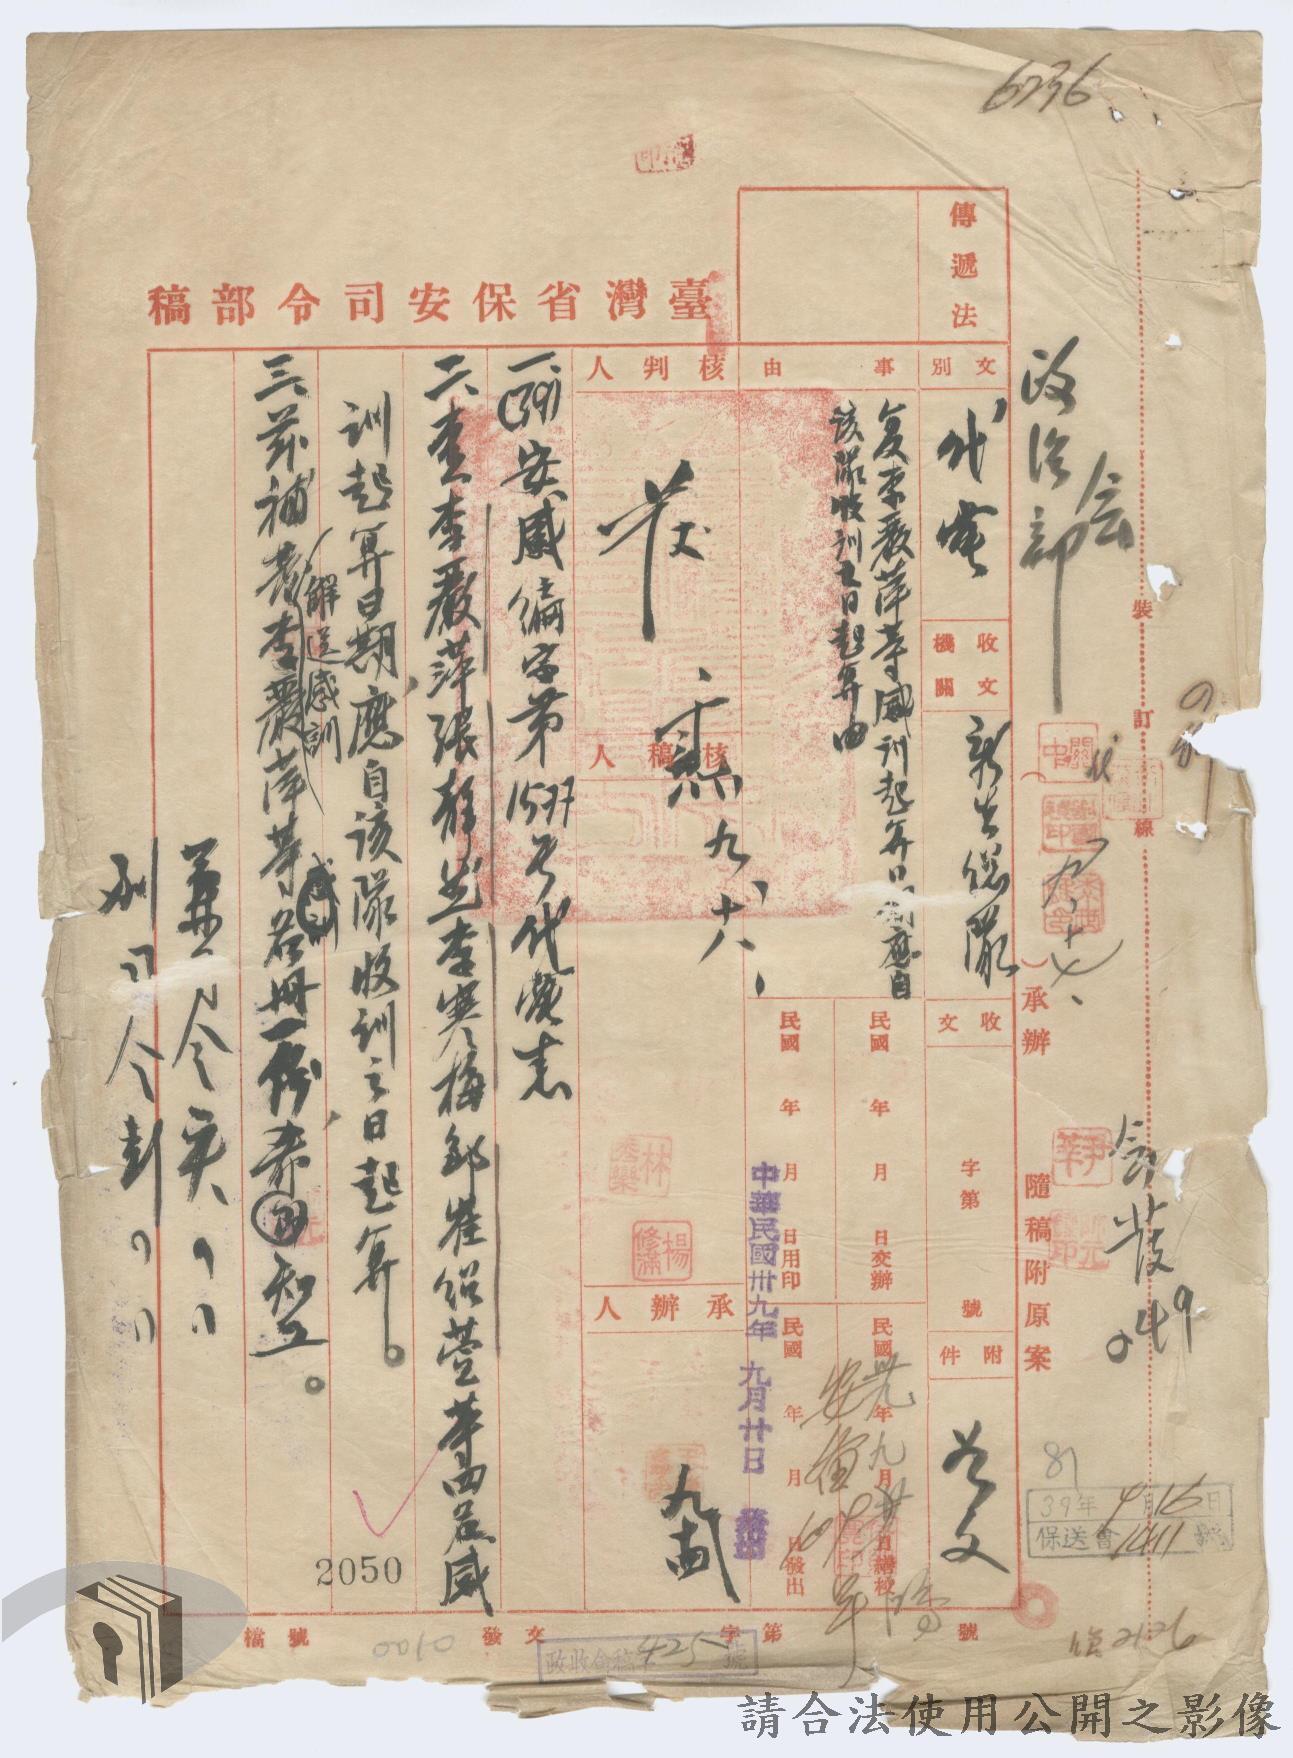 6236
臺灣省保安司令部稿
傳遞法
文別
代電
收文機關
新生總隊
收文
字第
號
附件
如文
事由
复李嚴萍等感訓起算日期應自
該隊收訓之日起算由
核判人
核稿人
九、十六、
承辦人
民國 年 月 日交辦
民國卅九年九月 日繕校
民國 年 月 日用印
民國 年 月 日發出
中華民國卅九年 九月廿日
一、(39)安感編字第1577号代電悉
二、查李嚴萍張靜
李寒梅邹崔绍萱等四名感
訓起算日期應自该隊收訓之日起算。
三、兹補考李嚴萍等
解送感訓
名冊一份希
知照。
兼司令吳、、
副司令彭、、
政治部
会
裝
訂
線
(
)承辦
隨稿附原案
林秀欒
楊修滿
81
39年9月15日
保送會1411號
2050
檔號
0100
交發
字第
號
政收會稿字425號
2126
請合法使用公開之影像